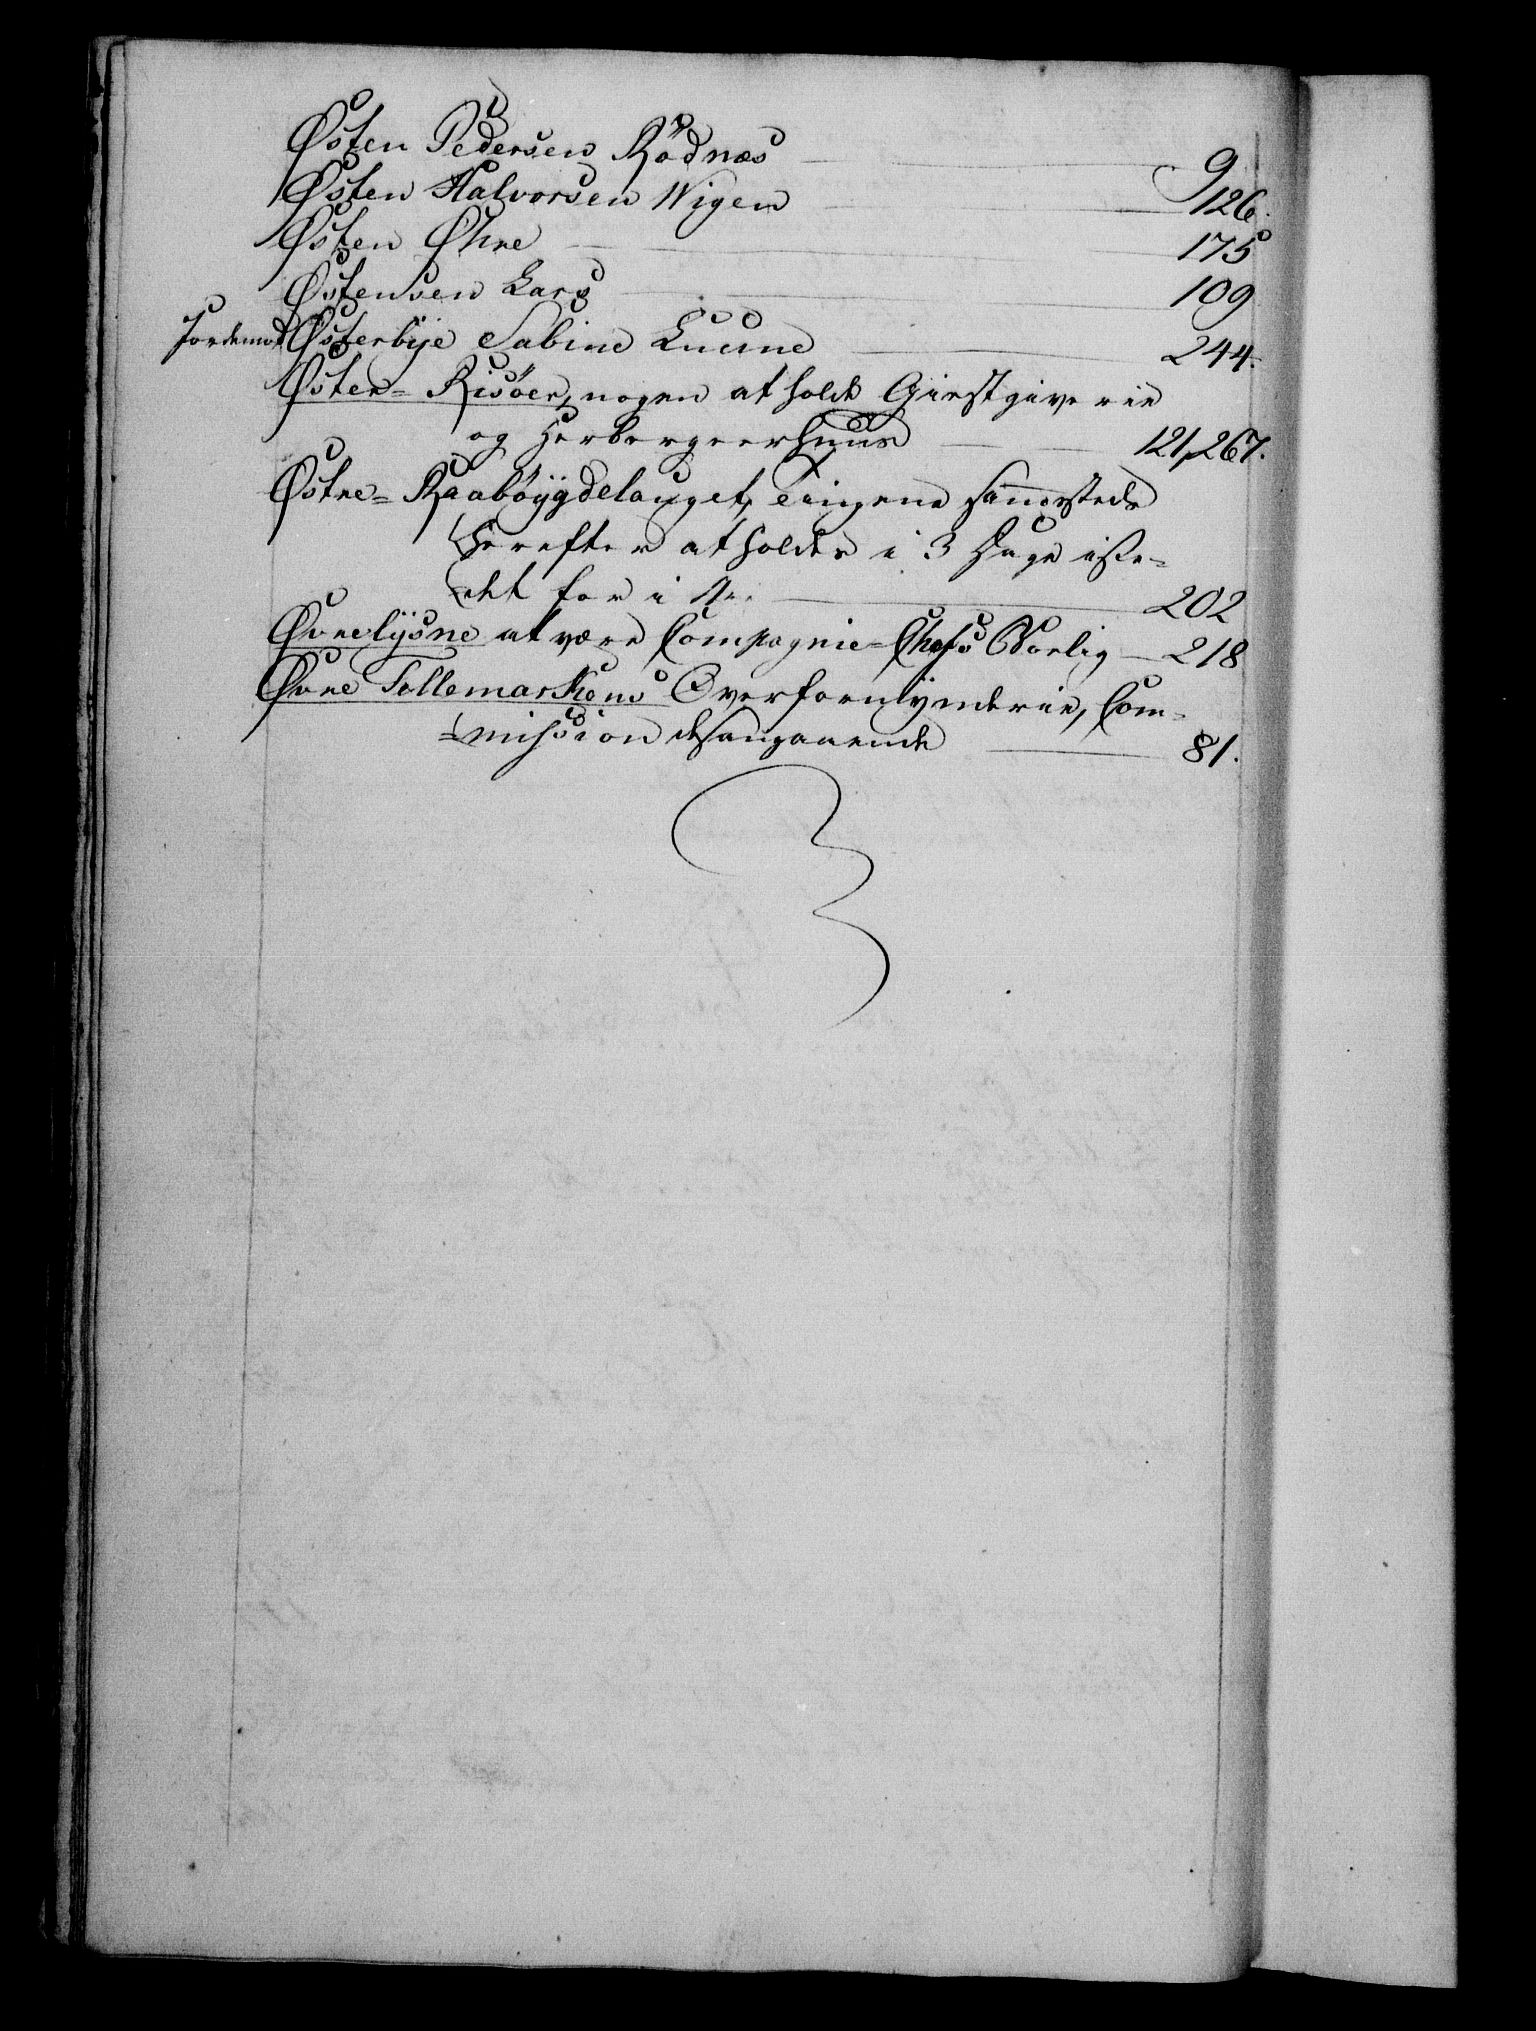 Østen Pedersen Rödnæs 9
Østen Halvorsen Wigen 126.
Østen Øhre 175
Østensen Lars 109
Jordemod. Østerbÿe Sabine Lucine 244.
Øster= Risöer, nogen at holde Giæstgiverie
og Herbergeerhuus 121, 267.
Østre= Raabÿgdelauget, Tingene sammestæds
herefter at holdes i 3 Dage iste=
=det for i 202
Øvrelÿsne at være Compagnie=Chefs Boelig 218
Øvre Tellemarkens Overformÿnderie, Com=
=mission desangaaende 81.